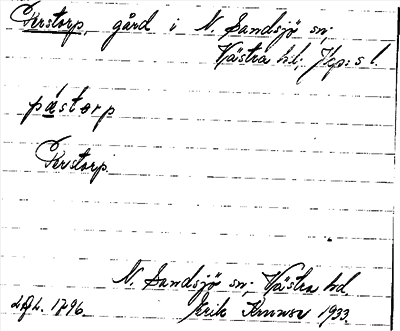 Perstorp, gård i N. Sandsjö sn,
Västra hd. Jkp:s l.
pæstorp
Perstorp.
N. Sandsjö sn, Västra hd.
1796. Erik 1933.